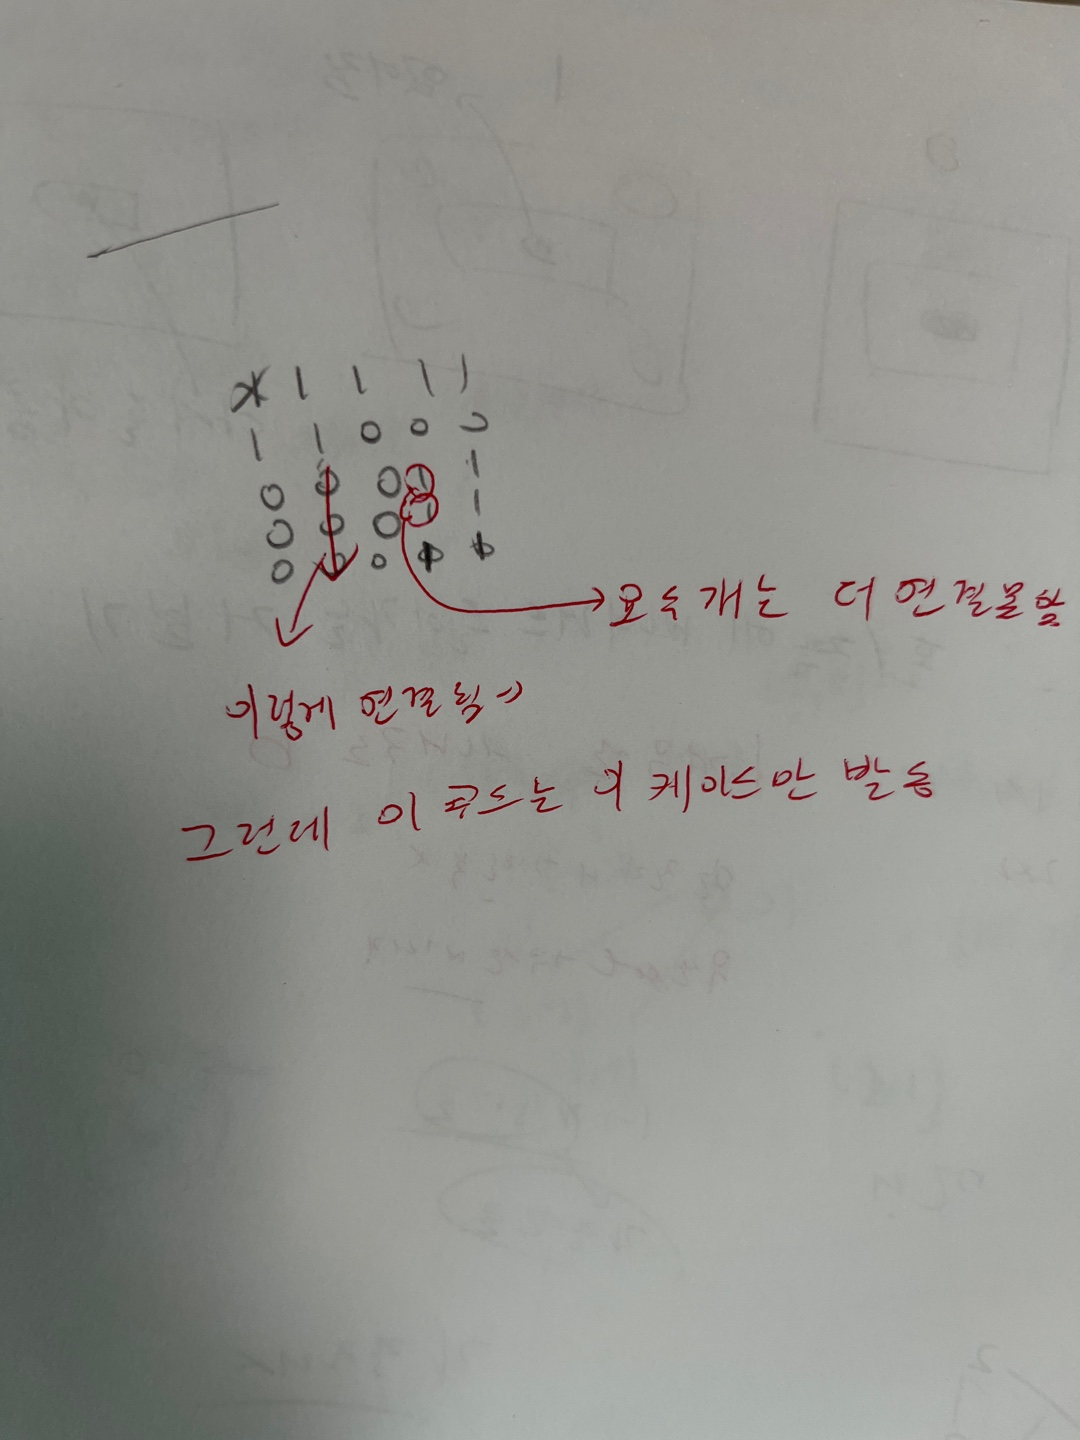 * 1 1 1 1
1 1 0 0
0 0 0 1 1
0 0 0 1 1
0 0 0
요 두개는 더 연결못함
이렇게 연결됨
그런데 이 코드는 이 케이스만 발동